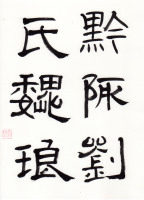 黔陬劉
氏魏琅